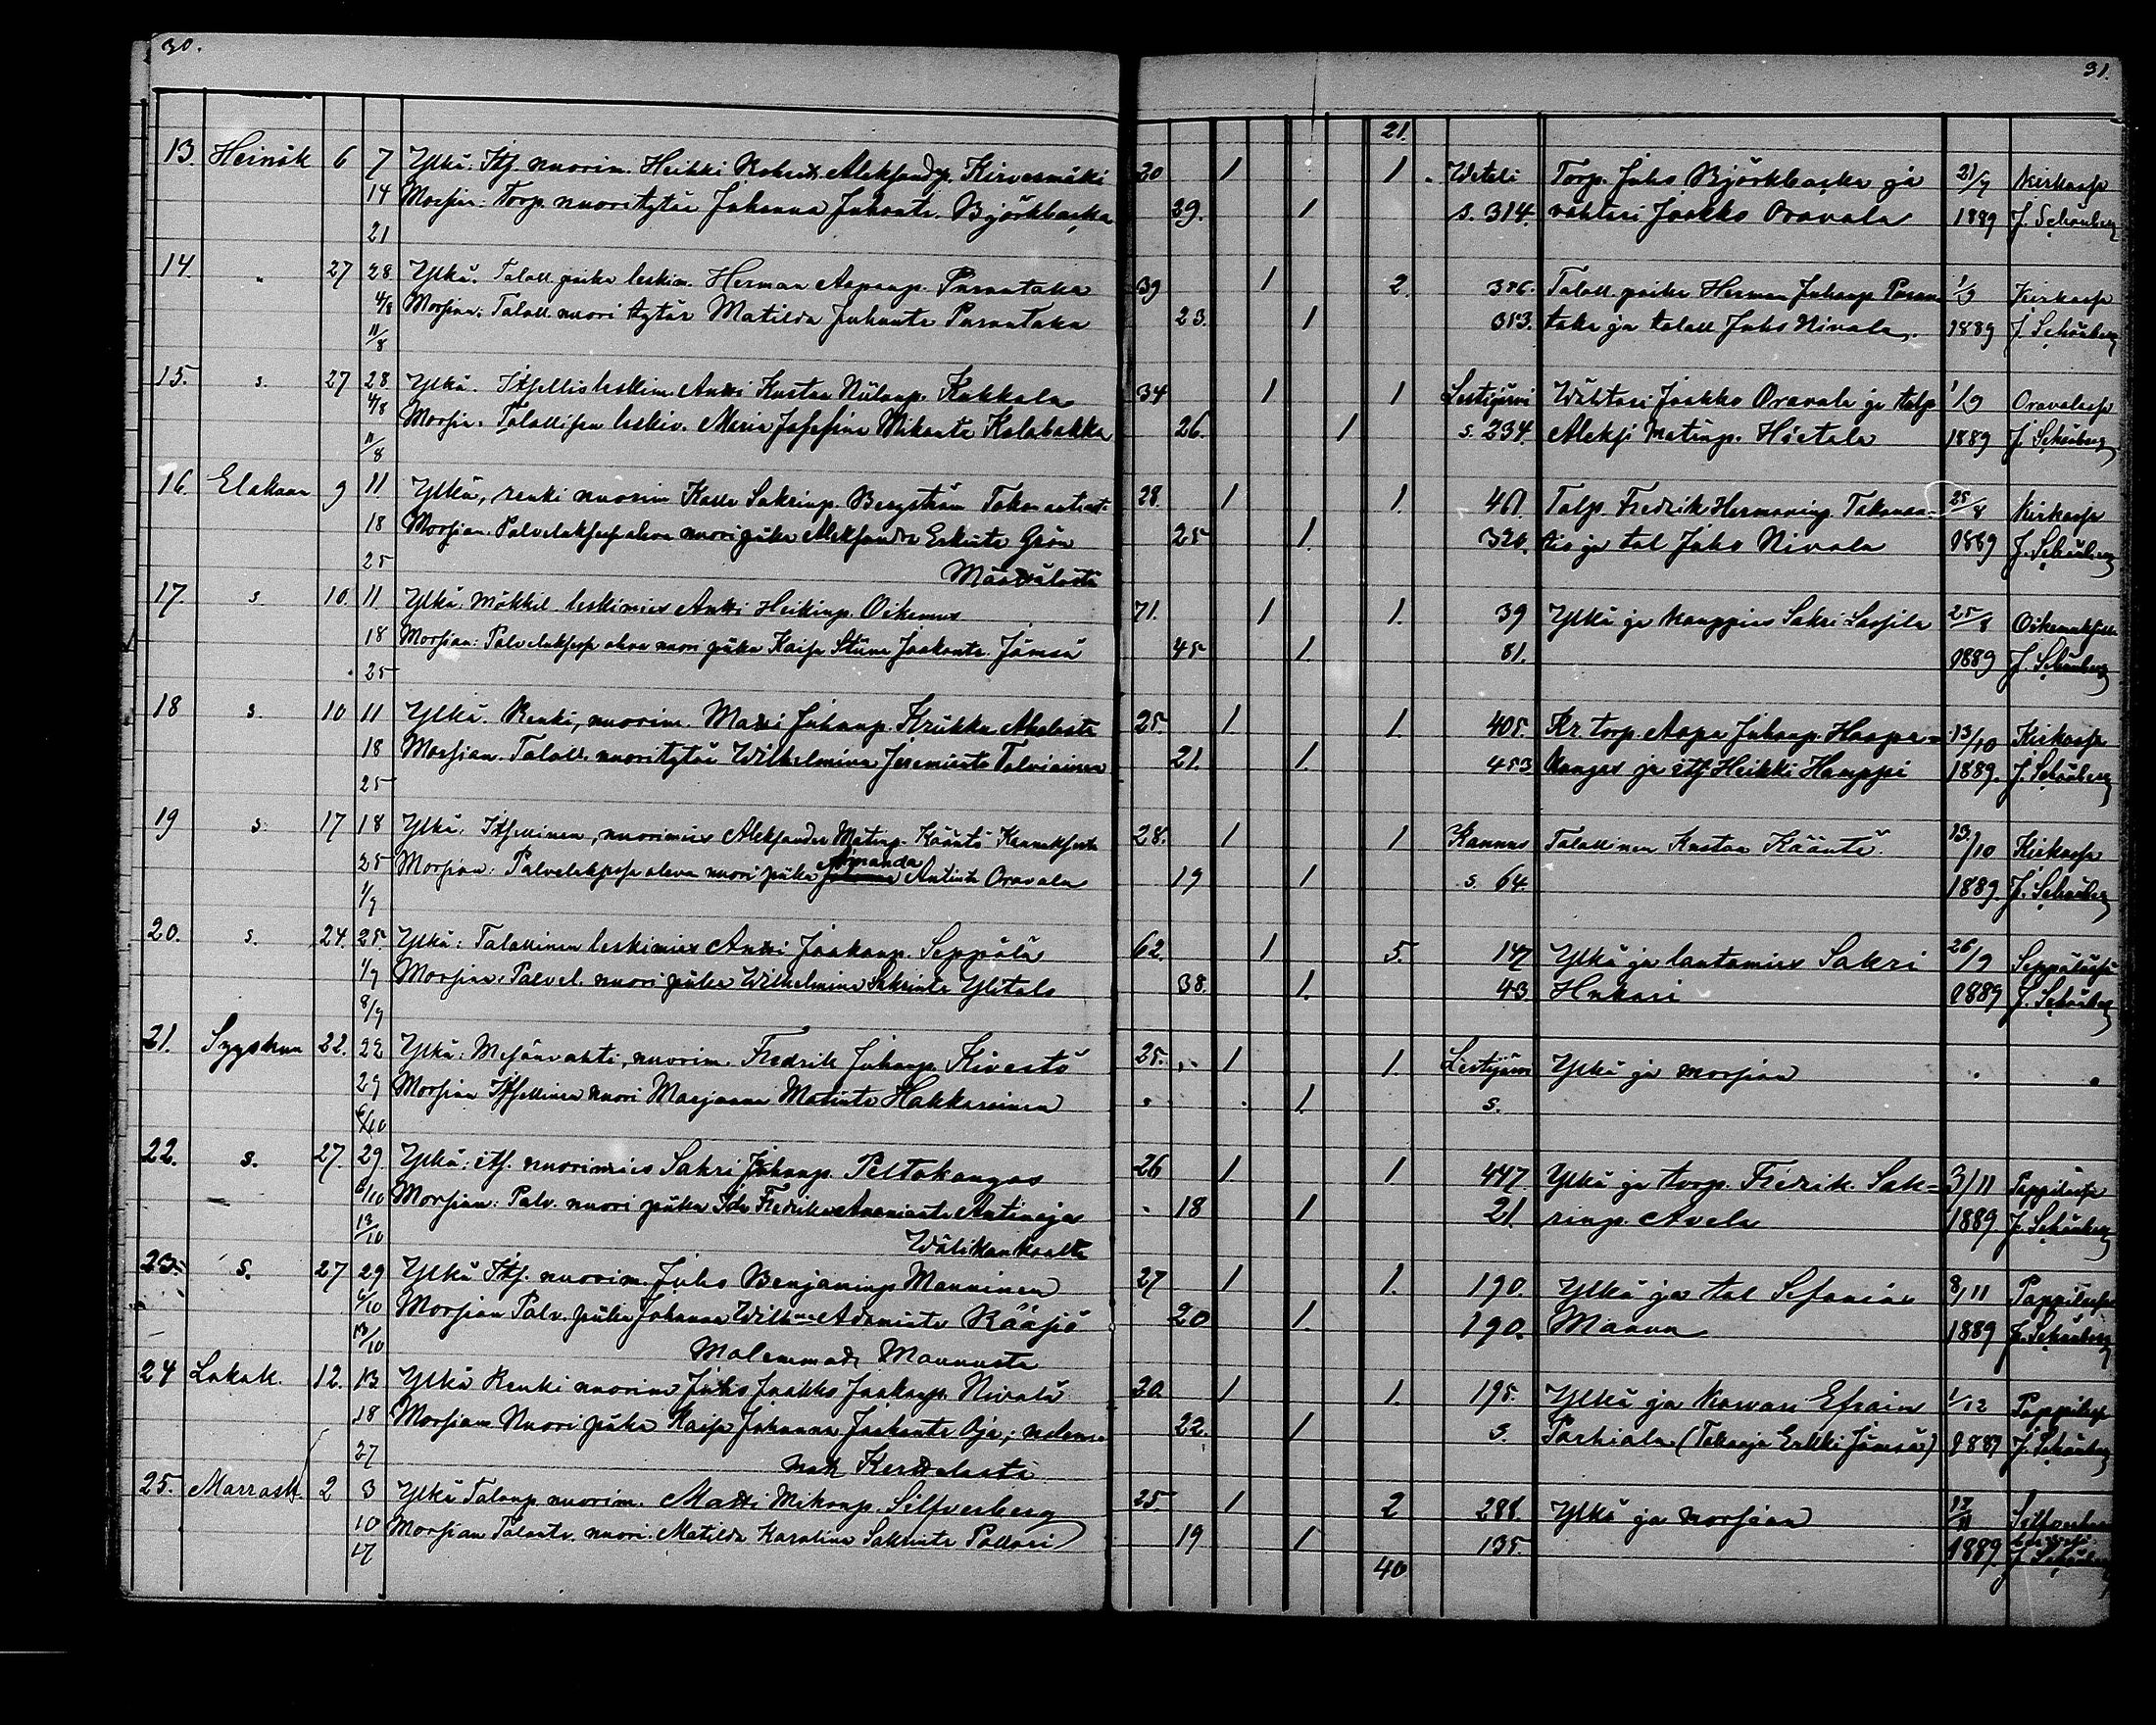 30.
31.
21.
13. Heinäk 6 7 Ylkä: Itf. nuorim. Heikki Aleksandp. Kirvesmäki 20 1 1 Weteli Torp. Juho Björkbacka ja 21/7 Kirkossa
14 Morsian: Torp. nuori tytär Johanna Juhont. Björkbacka 29. 1 s. 314. vahtari Jaakko Oravala 1889 J. Schönberg
21
14 " 27 28 Ylkä. Taloll. poika leskim. Herman Aapanp. Purontaka 39 1 2. 386. Taloll. poika Herman Juhonp. Puron- 1/9 Kirkossa
4/8 Morsian: Taloll. nuori tytär Matilda Juhonte Purontaka 23. 1 313. taka ja taloll Juho Nivala. 1889 J. Schönberg
11/8
15. s. 27 28 Ylkä. Itsellis leskim. Antti Kustaa Niilonp. Kukkola 34 1 1 Lestijärvi Wahtari Jaakko Oravala ja talp 1/9 Oravalassa
4/8 Morsia. Talollisen leskiv. Maria Josefina Mikonte Kalabakka 26. 1 s. 234. Aleksi Matinp. Hietala 1889 J. Schönberg
11/8
16. Elokuu 9 11 Ylkä, renki nuorim Kalle Sakrinp. Bergström 28. 1 1. 461. Talp. Fredrik Hermaninp. 25/8 Kirkossa
18 Morsian. Palveluksessa oleva nuori piika Aleksandra Erkinte Grön 25 1. 320. tio ja tal Juho Nivala 1889 J. Schönberg
25 Määttälästä
17. s. 10. 11 Ylkä: Mäkkil. leskimies Antti Heikinp. Oikemus 71. 1 1. 39 Ylkä ja kauppies Sakri Sassila 25/8
18 Morsian: Palveluksessa oleva nuori piika Kaisa Stiina Jaakonte. Jämsä 45 1. 81. 1889 J. Schönberg
25
18 s. 10 11 Ylkä. Renki, nuorim. Matti Juhonp. Krükka Aholasta 25. 1 1. 405. Kr torp. Aapa Juhonp. Haapa= 13/10 Kirkossa
18 Morsian. Taloll. nuori tytär Wilhelmina Jeremiante Talviainen 21. 1. 453 kangas ja itf. Heikki Hamppi 1889. J. Schönberg
25
19 s. 17 18 Ylkä: Itsellinen, nuorimies Aleksander Matinp. Kääntä Kannuksesta 28. 1 1 Kannus Talollinen Kustaa Kääntä. 13/10 Kirkossa
25 Morsian: Palveluksessa oleva nuori piika Amanda Antinte Oravala 19 1 s. 64. 1889. J. Schönberg
1/9
20. s. 24. 25. Ylkä: Talollinen leskimies Antti Jaakonp. Seppälä 62. 1 5. 147 Ylkä ja lautamies Sakri 26/9 Seppälässä
1/9 Morsian: Palvel. nuori piika Wilhelmina Sakrinte Ylitalo 38. 1. 43 Hukari 1889 J. Schönberg
8/9
21. Syyskuu 22. 22 Ylkä: Metsänvahti, nuorim. Fredrik Juhonp. Kivestö 25. 1 1. Lestijärvi Ylkä ja morsian
29 Morsian Itsellinen nuori Marjaana Matinte Hakkarainen 1. s.
6/10
22. s. 27. 29. Ylkä: itf. nuorimies Sakri Juhonp. Peltokangas 26 1 1 447 Ylkä ja torp. Fredrik. Sak= 3/11 Pappilassa
6/10 Morsian: Palv. nuori piika Ida Fredrika Ananiante Antinoja 18 1 21. rinp. Avela 1889 J. Schönberg
13/10 Wälikankaalta
23. s. 27 29 Ylkä Itf. nuorim. Juho Benjaminp Manninen 27 1 1. 190. Ylkä ja tal Sefanias 8/11 Pappilassa
6/10 Morsian Palv. piika Johanna Wilhna Adamiante Rääpiö 20 1. 190. Maunu 1889 J. Schönberg
13/10 Molemmat Maunusta
24 Lokak. 12. 13 Ylkä Renki nuorim Juho Jaakko Jaakonp. Nivala 20 1 1. 195. Ylkä ja karvari Efraim 1/12 Pappilassa
18 Morsian Nuori piika Kaisa Johanna Jaakonte Oja; molem= 22. 1 s. Parhiala (Takaaja Erkki Jämsä) 1889 J. Schönberg
27 mat Kerttulasta
25. Marrask. 2 3 Ylkä Talonp nuorim. Matti Mikonp. Silfverberg 25 1 2 288. Ylkä ja morsian
10 Morsian Talonte. nuori. Matilda Karolina Sakrinte Pollari 19 1 135. 1889 J. Schönberg
17 40